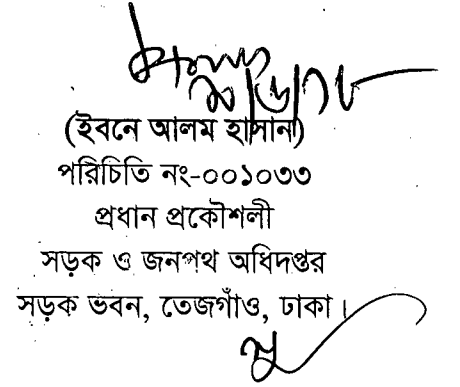 (ইবনে আলম হাসান)
পরিচিতি নং-০০১০৩৩
প্রধান প্রকৌশলী
সড়ক ও জনপথ অধিদপ্তর
সড়ক ভবন, তেজগাঁও, ঢাকা।